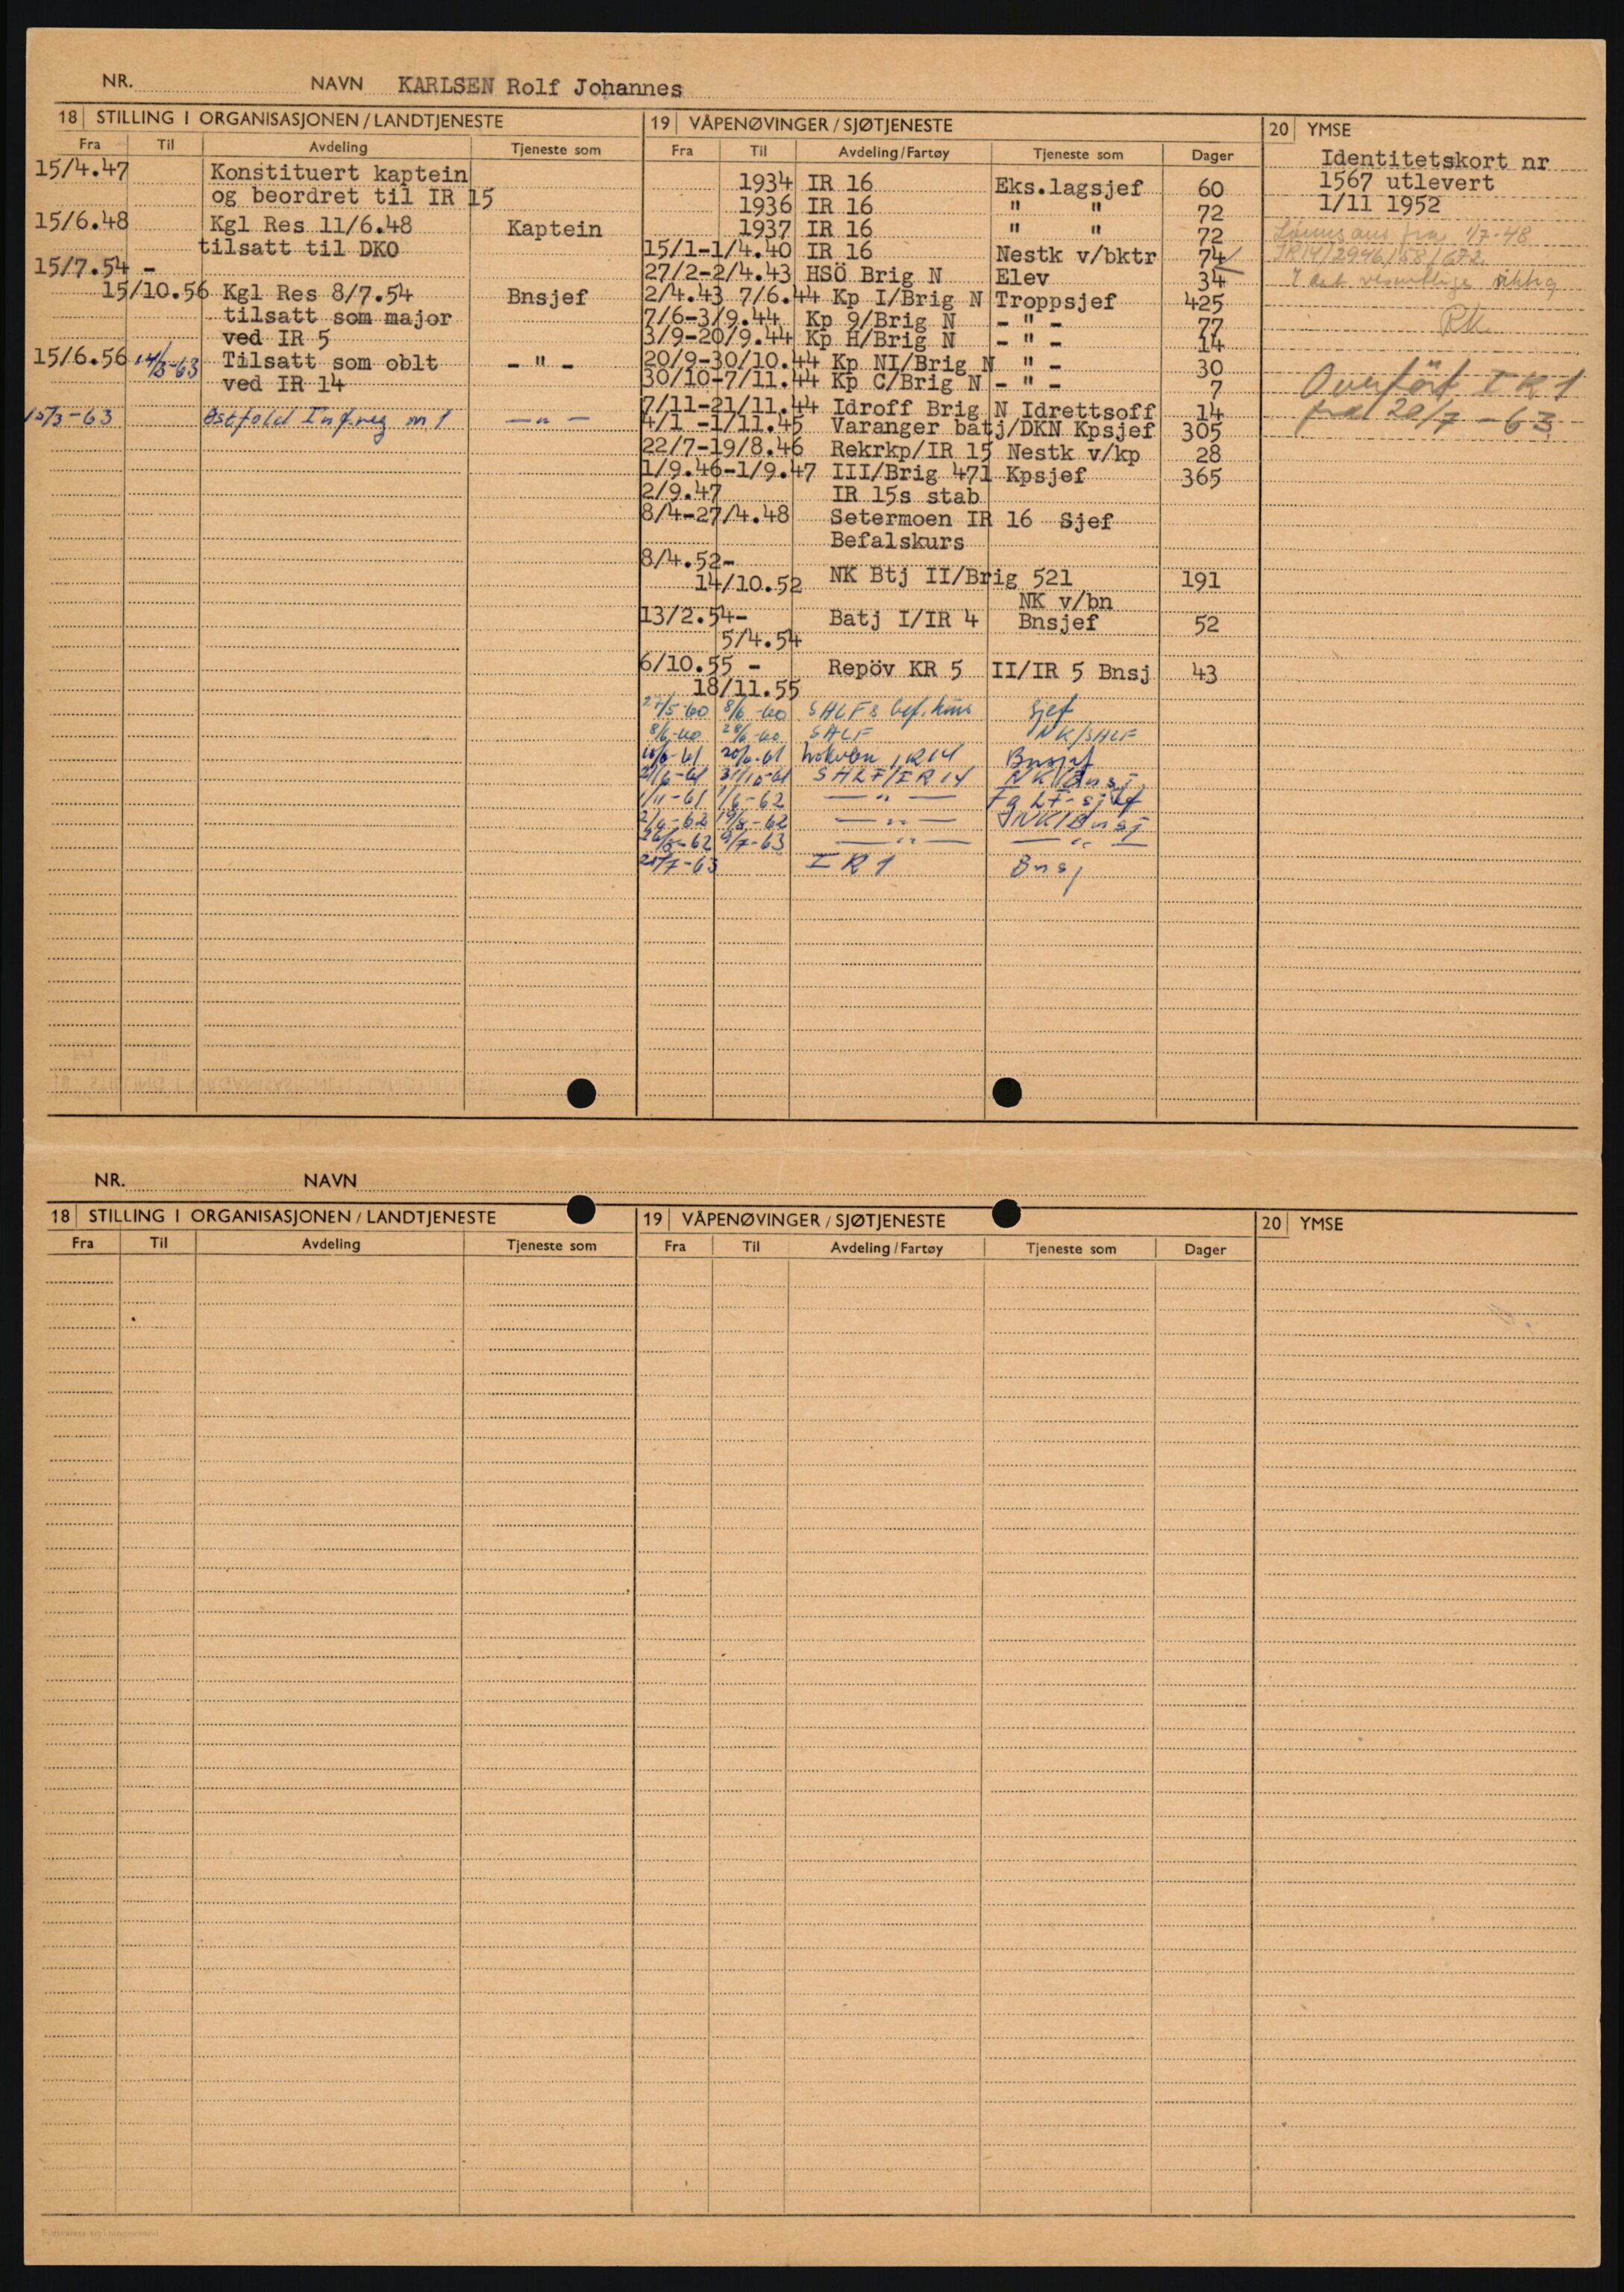 NR. NAVN KARLSEN Rolf Johannes
18 STILLING I ORGANISASJONEN / LANDTJENESTE
Fra Til Avdeling Tjeneste som
15/4.47 Konstituert kaptein
og beordret til IR 15
15/6.48 Kgl Res 11/6.48 Kaptein
tilsatt til DKO
15/7.54 -
15/10.56 Kgl Res 8/7.54 Bnsjef
tilsatt som major
ved IR 5
15/6.56 14/3-63 Tilsatt som oblt - " -
ved IR 14
15/3-63 Østfold Inf.reg nr 1 — " —
19 VÅPENØVINGER / SJØTJENESTE
Fra Til Avdeling/Fartøy Tjeneste som Dager
1934 IR 16 Eks.lagsjef 60
1936 IR 16 " " 72
1937 IR 16 " " 72
15/1-1/4.40 IR 16 Nestk v/bktr 74
27/2-2/4.43 HSÖ Brig N Elev 34
2/4.43 7/6.44 Kp I/Brig N Troppsjef 425
7/6-3/9.44 Kp 9/Brig N - " - 77
3/9-20/9.44 Kp H/Brig N - " - 14
20/9-30/10.44 Kp NI/Brig N " - 30
30/10-7/11.44 Kp C/Brig N - " - 7
7/11-21/11.44 Idroff Brig N Idrettsoff 14
4/1 -1/11.45 Varanger batj/DKN Kpsjef 305
22/7-19/8.46 Rekrkp/IR 15 Nestk v/kp 28
1/9.46-1/9.47 III/Brig 471 Kpsjef 365
2/9.47 IR 15s stab
8/4-27/4.48 Setermoen IR 16 Sjef
Befalskurs
8/4.52-
14/10.52 NK Btj II/Brig 521 191
NK v/bn
13/2.54- Batj I/IR 4 Bnsjef 52
5/4.54
6/10.55 - Repöv KR 5 II/IR 5 Bnsj 43
18/11.55
8/6-60 SHLFs bef.kurs Sjef
8/6-60 SHLF NK/SHLF
IR 14 Bnsjef
21/6-61 31/10-61 SHLF/IR 14 NK/Bnsj
1/11-61 1/6-62 — " — Fg LF-sjef
2/6-62 19/8-62 — " — NK/Bnsj
9/7-63 — " — — " —
20/7-63 IR 1 Bnsj
20 YMSE
Identitetskort nr
1567 utlevert
1/11 1952
fra 1/7-48
riktig
RK
Overført IR 1
fra 20/7 - 63
NR. NAVN
18 STILLING I ORGANISASJONEN / LANDTJENESTE
Fra Til Avdeling Tjeneste som
19 VÅPENØVINGER / SJØTJENESTE
Fra Til Avdeling/Fartøy Tjeneste som Dager
20 YMSE